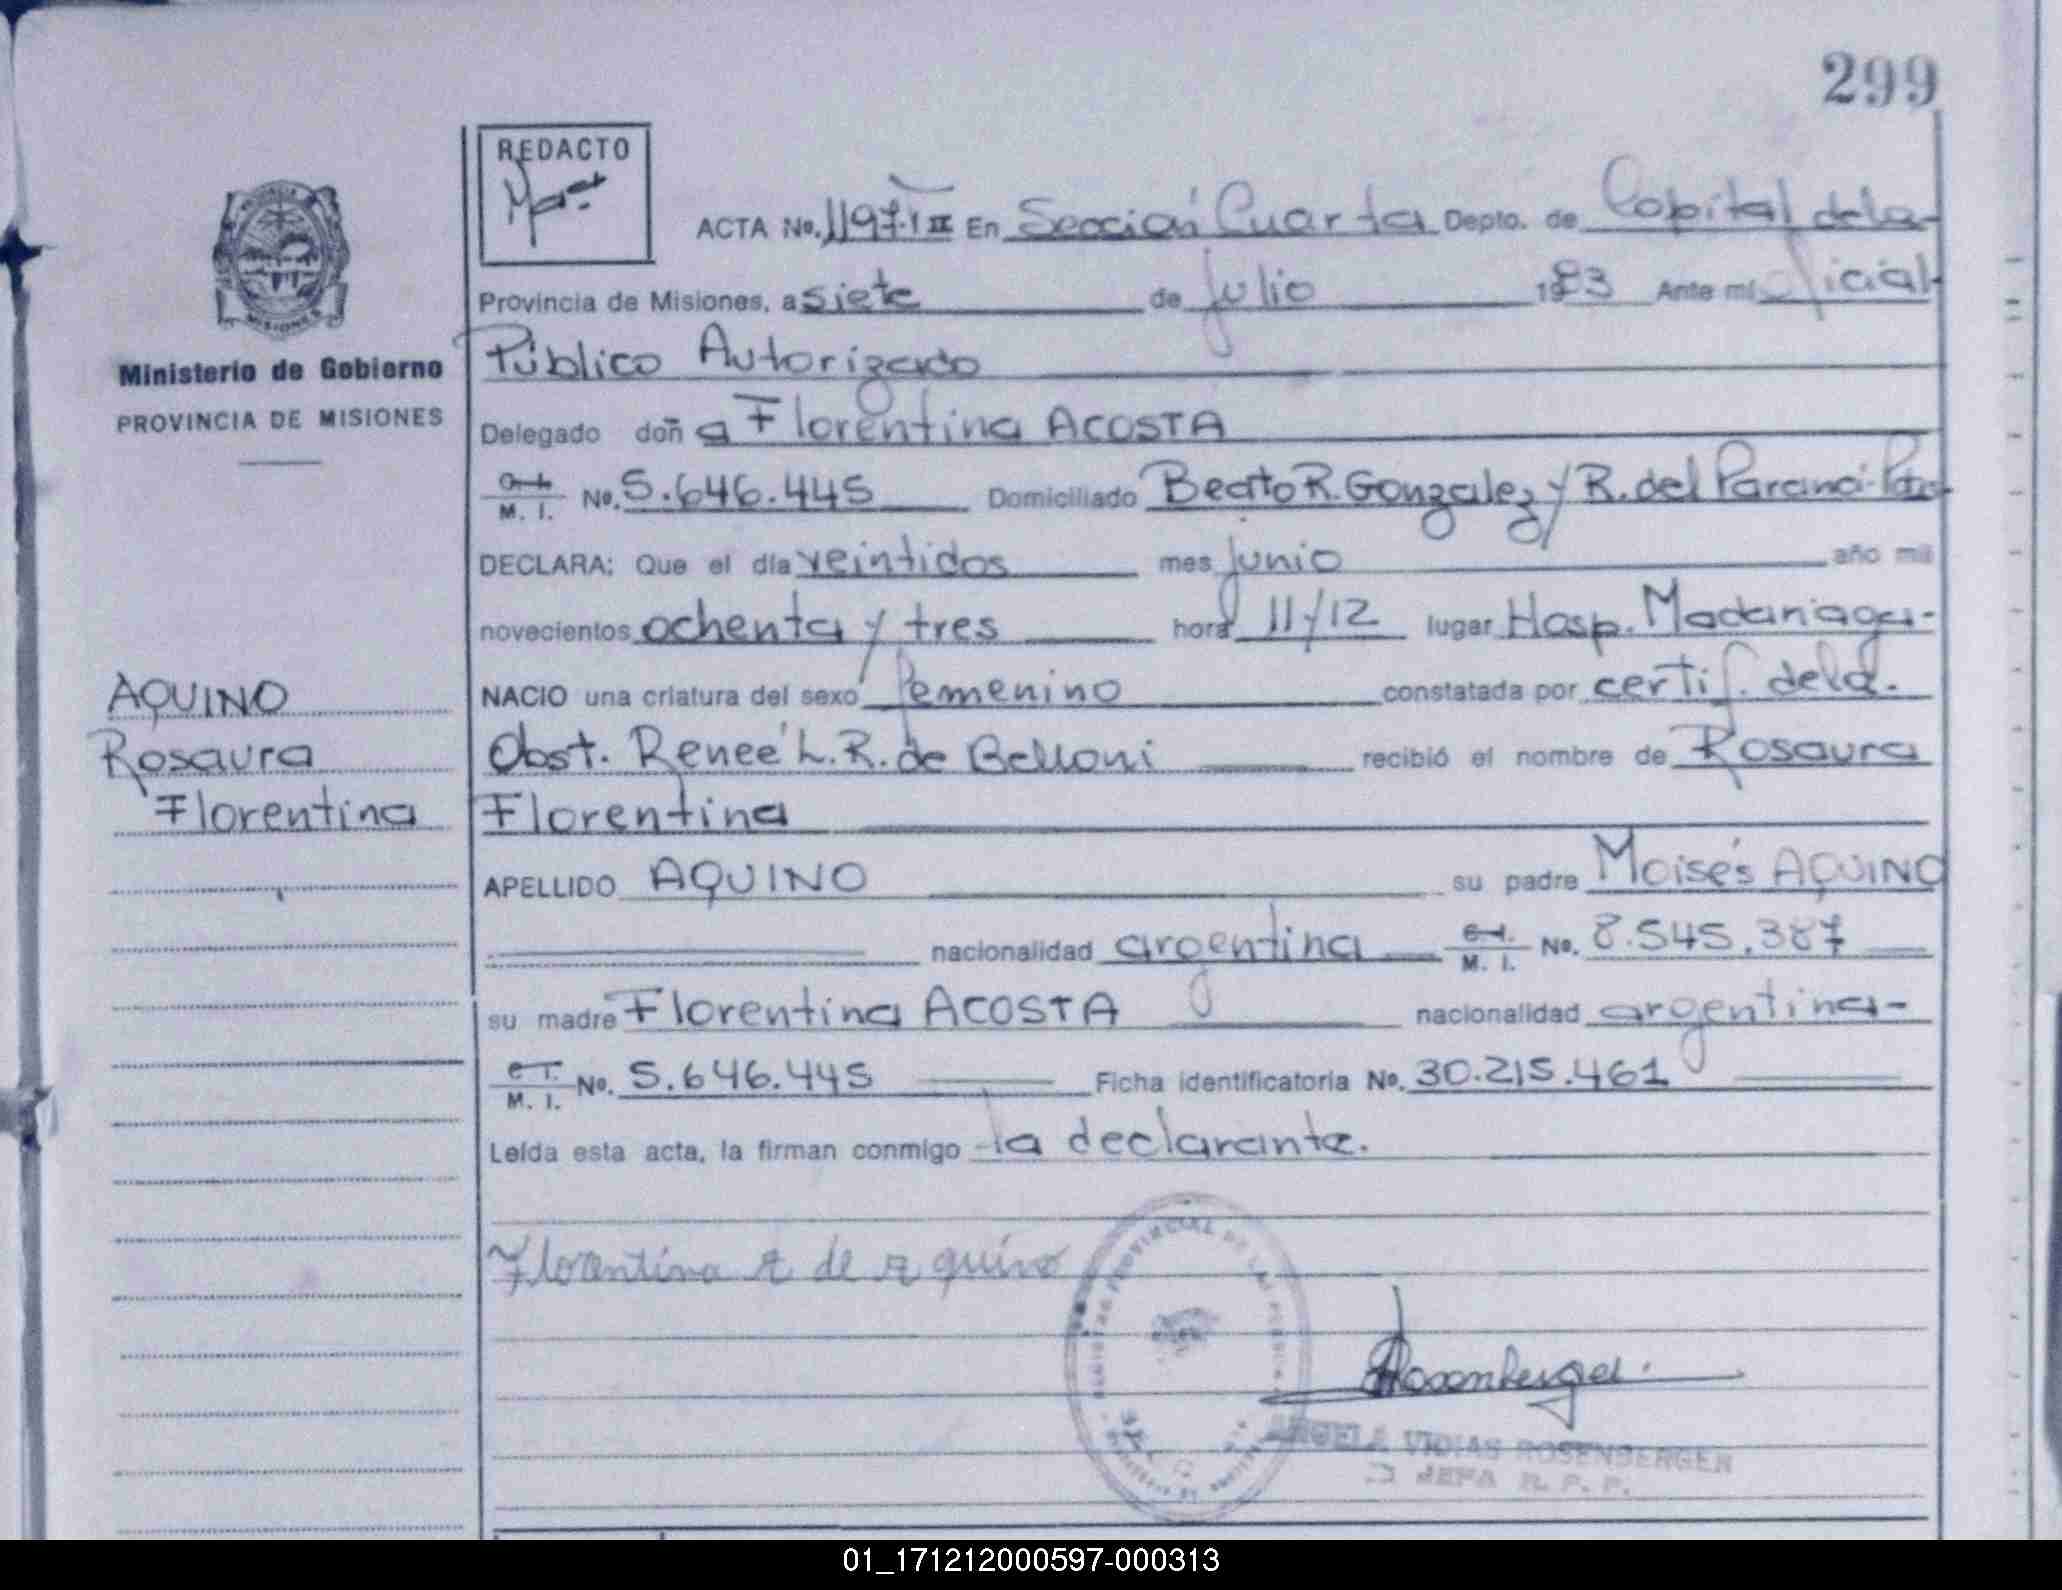 299
REDACTO
ACTA No. 1197-T III En Sección Cuarta Depto. de Capital dela-
Provincia de Misiones, a siete de Julio 1983 Ante mí oficial
Público Autorizado
Ministerio de Gobierno
PROVINCIA DE MISIONES
Delegado doña Florentina ACOSTA
M. I. No. 5.646.445 Domiciliado Beato R. Gonzalez y R. del Paraná-
DECLARA: Que el día veintidos mes junio año mil
novecientos ochenta y tres hora 11/12 lugar Hosp. Madariaga-
NACIO una criatura del sexo femenino constatada por certif. dela.
Obst. Renee L. R. de Belloni recibió el nombre de Rosaura
Florentina
AQUINO
Rosaura
Florentina
APELLIDO AQUINO su padre Moisés AQUINO
nacionalidad argentina M. I. No. 8.545.387
su madre Florentina ACOSTA nacionalidad argentina-
M. I. No. 5.646.445 Ficha identificatoria No. 30.215.461
Leída esta acta, la firman conmigo la declarante.
Florentina A de Aquino
REGISTRO PROVINCIAL DE LAS PERSONAS
Rosenberger
ROSENBERGER
JEFA R. P. P.
01_171212000597-000313